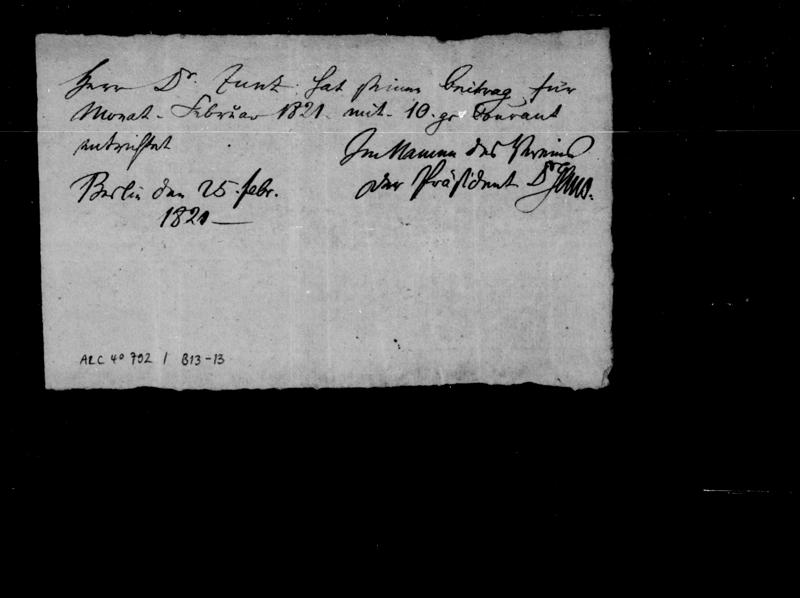 Herr Dr. Zunz hat seinen Beitrag für
Monat Februar 1821 mit 10 gr Courant
entrichtet
Im Namen des Vereins
Berlin den 25. Febr.
der Präsident Dr Gans.
1821
ARC 4° 792 / B13-13